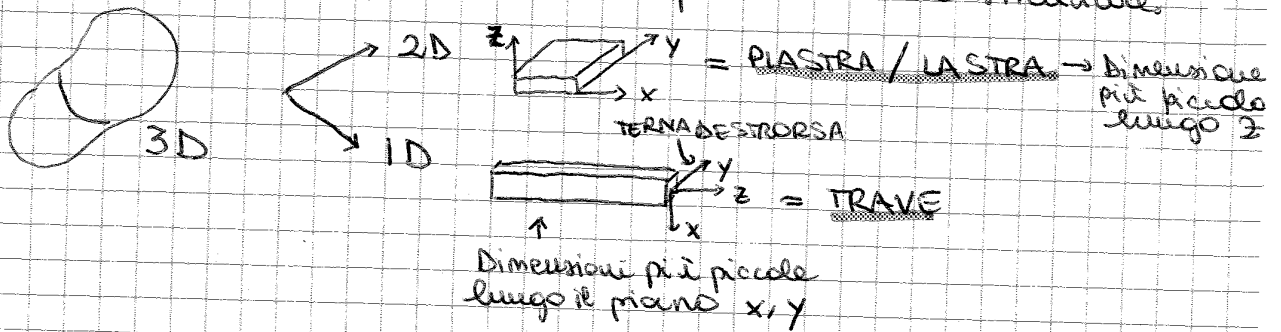 2D Z Y X = PIASTRA / LASTRA → Dimensione
più piccola
lungo Z
3D
1D
TERNA DESTRORSA
Y Z X = TRAVE
↑
Dimensioni più piccole
lungo il piano x, y